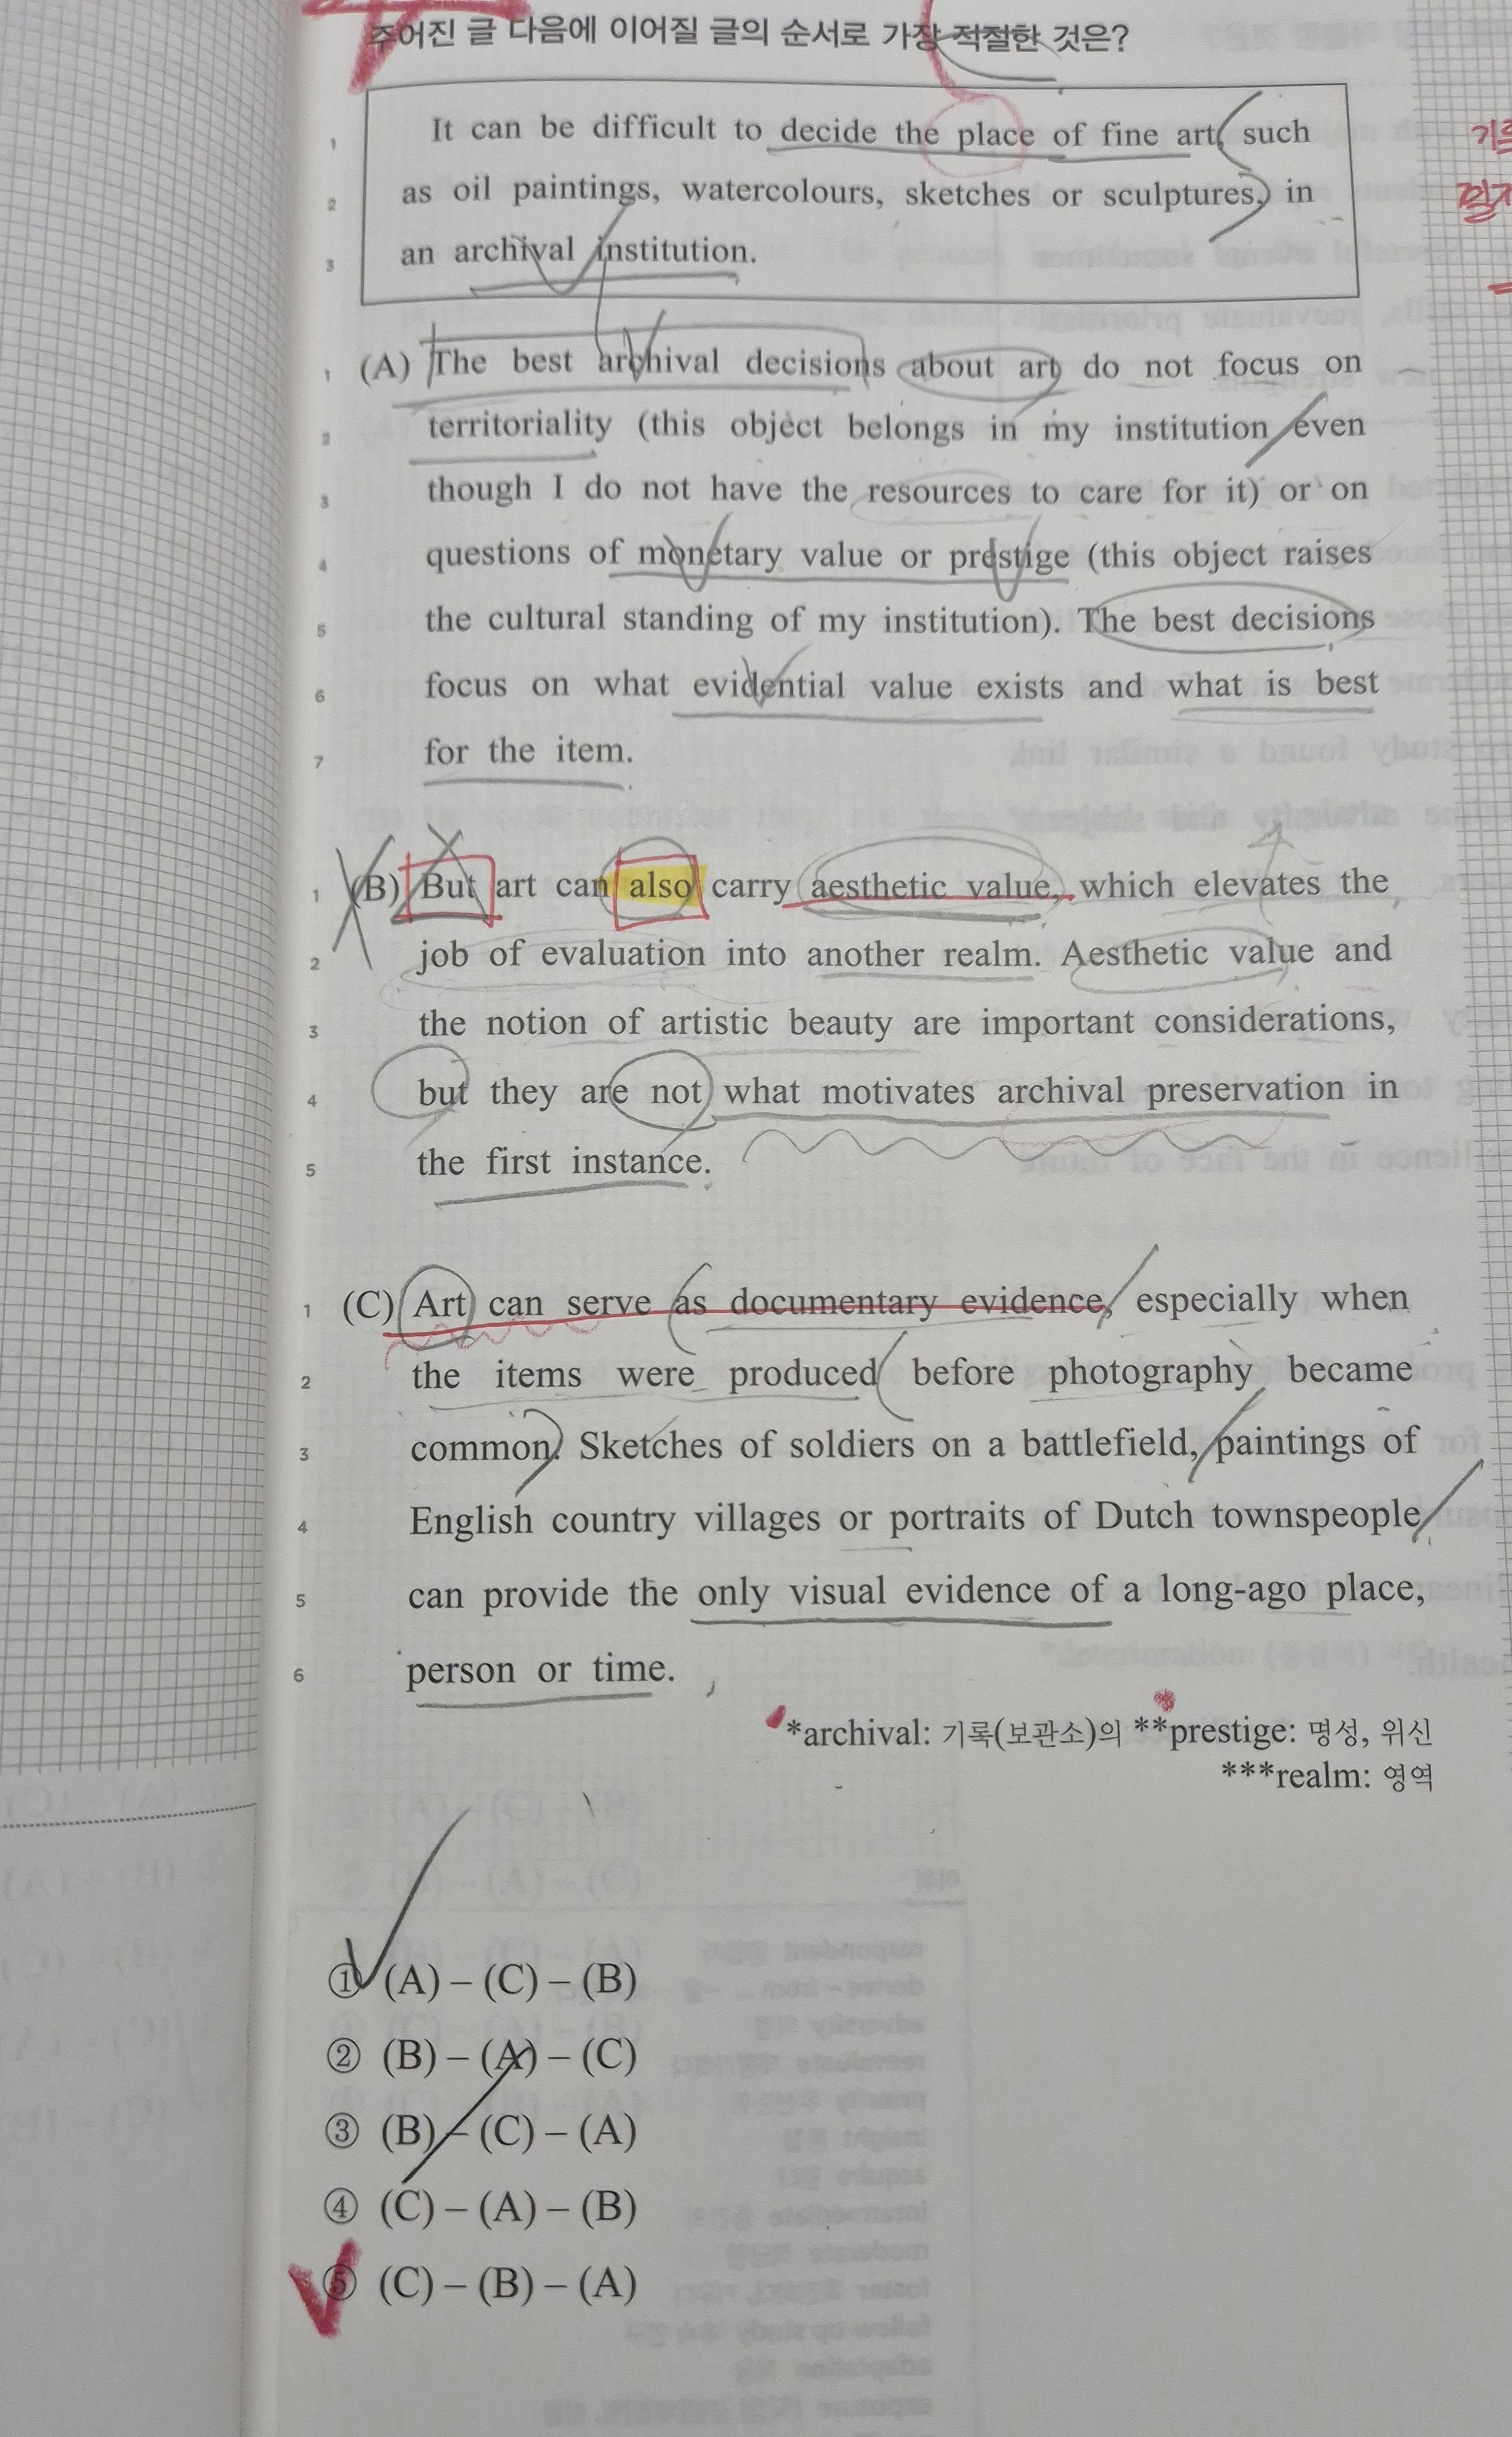 주어진 글 다음에 이어질 글의 순서로 가장 적절한 것은?
1 It can be difficult to decide the place of fine art, such
2 as oil paintings, watercolours, sketches or sculptures, in
3 an archival institution.
1 (A) The best archival decisions about art do not focus on
2 territoriality (this object belongs in my institution even
3 though I do not have the resources to care for it) or on
4 questions of monetary value or prestige (this object raises
5 the cultural standing of my institution). The best decisions
6 focus on what evidential value exists and what is best
7 for the item.
1 (B) But art can also carry aesthetic value, which elevates the
2 job of evaluation into another realm. Aesthetic value and
3 the notion of artistic beauty are important considerations,
4 but they are not what motivates archival preservation in
5 the first instance.
1 (C) Art can serve as documentary evidence, especially when
2 the items were produced before photography became
3 common. Sketches of soldiers on a battlefield, paintings of
4 English country villages or portraits of Dutch townspeople
5 can provide the only visual evidence of a long-ago place,
6 person or time.
*archival: 기록(보관소)의 **prestige: 명성, 위신
***realm: 영역
① (A) – (C) – (B)
② (B) – (A) – (C)
③ (B) – (C) – (A)
④ (C) – (A) – (B)
⑤ (C) – (B) – (A)